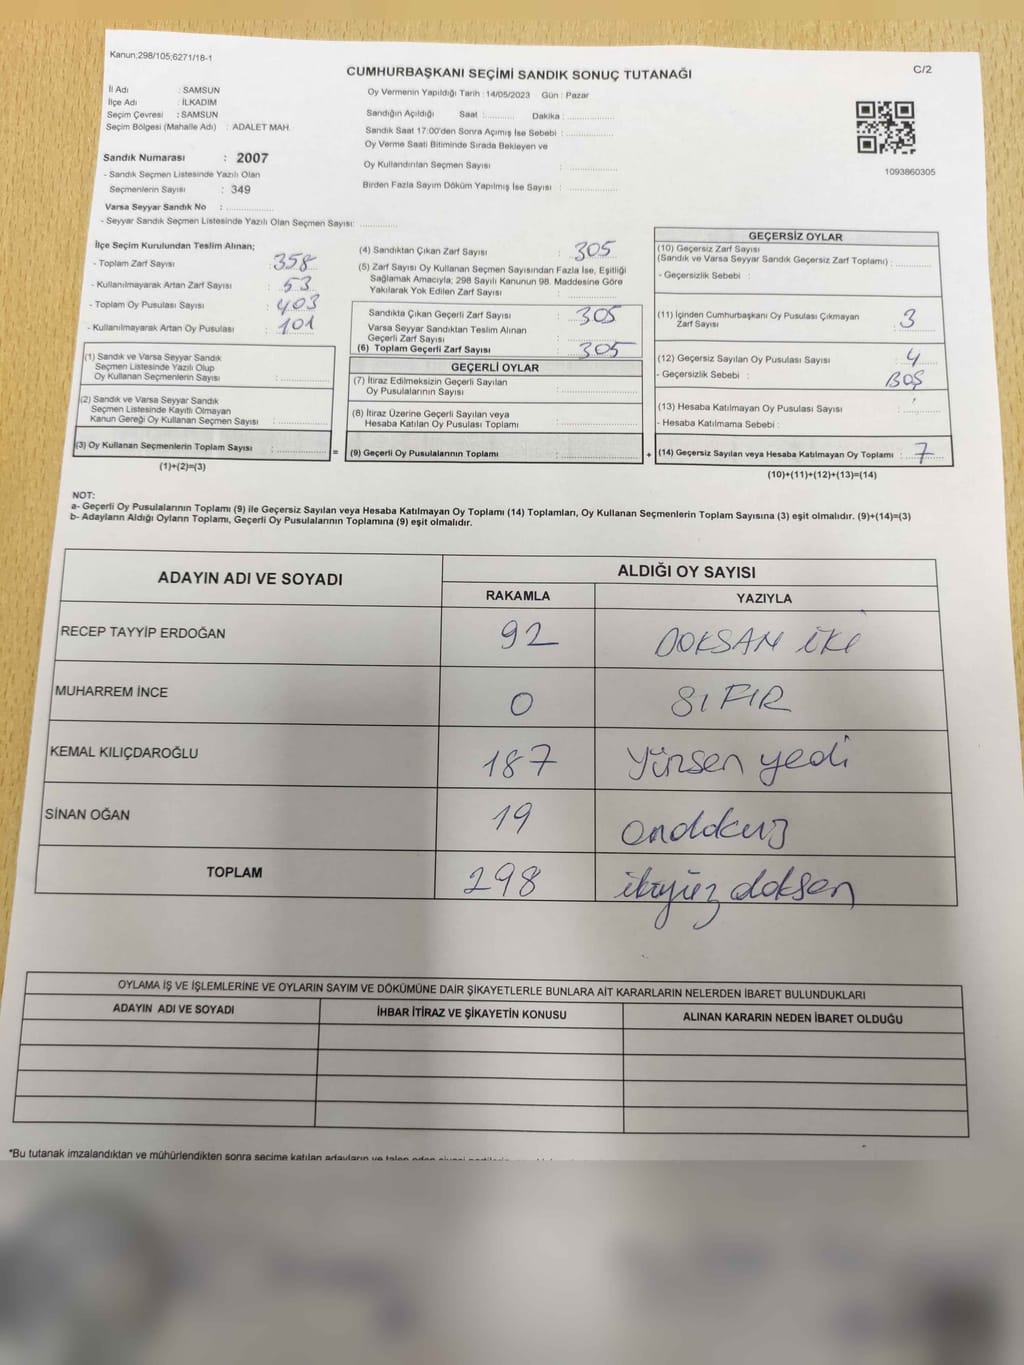 Kanun;298/105;6271/18-1
C/2
CUMHURBAŞKANI SEÇİMİ SANDIK SONUÇ TUTANAĞI
İl Adı : SAMSUN
İlçe Adı : İLKADIM
Seçim Çevresi : SAMSUN
Seçim Bölgesi (Mahalle Adı) : ADALET MAH.
Sandık Numarası : 2007
- Sandık Seçmen Listesinde Yazılı Olan
Seçmenlerin Sayısı : 349
Varsa Seyyar Sandık No : ..............
- Seyyar Sandık Seçmen Listesinde Yazılı Olan Seçmen Sayısı: ..............
Oy Vermenin Yapıldığı Tarih : 14/05/2023 Gün : Pazar
Sandığın Açıldığı Saat : ........... Dakika : ..............
Sandık Saat 17:00'den Sonra Açımış İse Sebebi : ..............
Oy Verme Saati Bitiminde Sırada Bekleyen ve
Oy Kullandırılan Seçmen Sayısı : ..............
Birden Fazla Sayım Döküm Yapılmış İse Sayısı : ..............
1093860305
İlçe Seçim Kurulundan Teslim Alınan;
- Toplam Zarf Sayısı : 358
- Kullanılmayarak Artan Zarf Sayısı : 53
- Toplam Oy Pusulası Sayısı : 403
- Kullanılmayarak Artan Oy Pusulası : 101
(1) Sandık ve Varsa Seyyar Sandık
Seçmen Listesinde Yazılı Olup
Oy Kullanan Seçmenlerin Sayısı : ..............
(2) Sandık ve Varsa Seyyar Sandık
Seçmen Listesinde Kayıtlı Olmayan
Kanun Gereği Oy Kullanan Seçmen Sayısı : ..............
(3) Oy Kullanan Seçmenlerin Toplam Sayısı : .............. =
(1)+(2)=(3)
(4) Sandıktan Çıkan Zarf Sayısı : 305
(5) Zarf Sayısı Oy Kullanan Seçmen Sayısından Fazla İse, Eşitliği
Sağlamak Amacıyla, 298 Sayılı Kanunun 98. Maddesine Göre
Yakılarak Yok Edilen Zarf Sayısı : ..............
Sandıkta Çıkan Geçerli Zarf Sayısı : 305
Varsa Seyyar Sandıktan Teslim Alınan
Geçerli Zarf Sayısı : ..............
(6) Toplam Geçerli Zarf Sayısı : 305
GEÇERLİ OYLAR
(7) İtiraz Edilmeksizin Geçerli Sayılan
Oy Pusulalarının Sayısı : ..............
(8) İtiraz Üzerine Geçerli Sayılan veya
Hesaba Katılan Oy Pusulası Toplamı : ..............
(9) Geçerli Oy Pusulalarının Toplamı : .............. +
GEÇERSİZ OYLAR
(10) Geçersiz Zarf Sayısı
(Sandık ve Varsa Seyyar Sandık Geçersiz Zarf Toplamı) : ..........
- Geçersizlik Sebebi :
(11) İçinden Cumhurbaşkanı Oy Pusulası Çıkmayan
Zarf Sayısı : 3
(12) Geçersiz Sayılan Oy Pusulası Sayısı : 4
- Geçersizlik Sebebi : BOŞ
(13) Hesaba Katılmayan Oy Pusulası Sayısı : ..........
- Hesaba Katılmama Sebebi :
(14) Geçersiz Sayılan veya Hesaba Katılmayan Oy Toplamı : 7
(10)+(11)+(12)+(13)=(14)
NOT:
a- Geçerli Oy Pusulalarının Toplamı (9) ile Geçersiz Sayılan veya Hesaba Katılmayan Oy Toplamı (14) Toplamları, Oy Kullanan Seçmenlerin Toplam Sayısına (3) eşit olmalıdır. (9)+(14)=(3)
b- Adayların Aldığı Oyların Toplamı, Geçerli Oy Pusulalarının Toplamına (9) eşit olmalıdır.
ADAYIN ADI VE SOYADI
ALDIĞI OY SAYISI
RAKAMLA YAZIYLA
RECEP TAYYİP ERDOĞAN 92 DOKSAN İKİ
MUHARREM İNCE 0 SIFIR
KEMAL KILIÇDAROĞLU 187 Yünsen yedi
SİNAN OĞAN 19 ondokuz
TOPLAM 298 ikiyüz doksen
OYLAMA İŞ VE İŞLEMLERİNE VE OYLARIN SAYIM VE DÖKÜMÜNE DAİR ŞİKAYETLERLE BUNLARA AİT KARARLARIN NELERDEN İBARET BULUNDUKLARI
ADAYIN ADI VE SOYADI İHBAR İTİRAZ VE ŞİKAYETİN KONUSU ALINAN KARARIN NEDEN İBARET OLDUĞU
*Bu tutanak imzalandıktan ve mühürlendikten sonra seçime katılan adayların ve talep eden siyasi